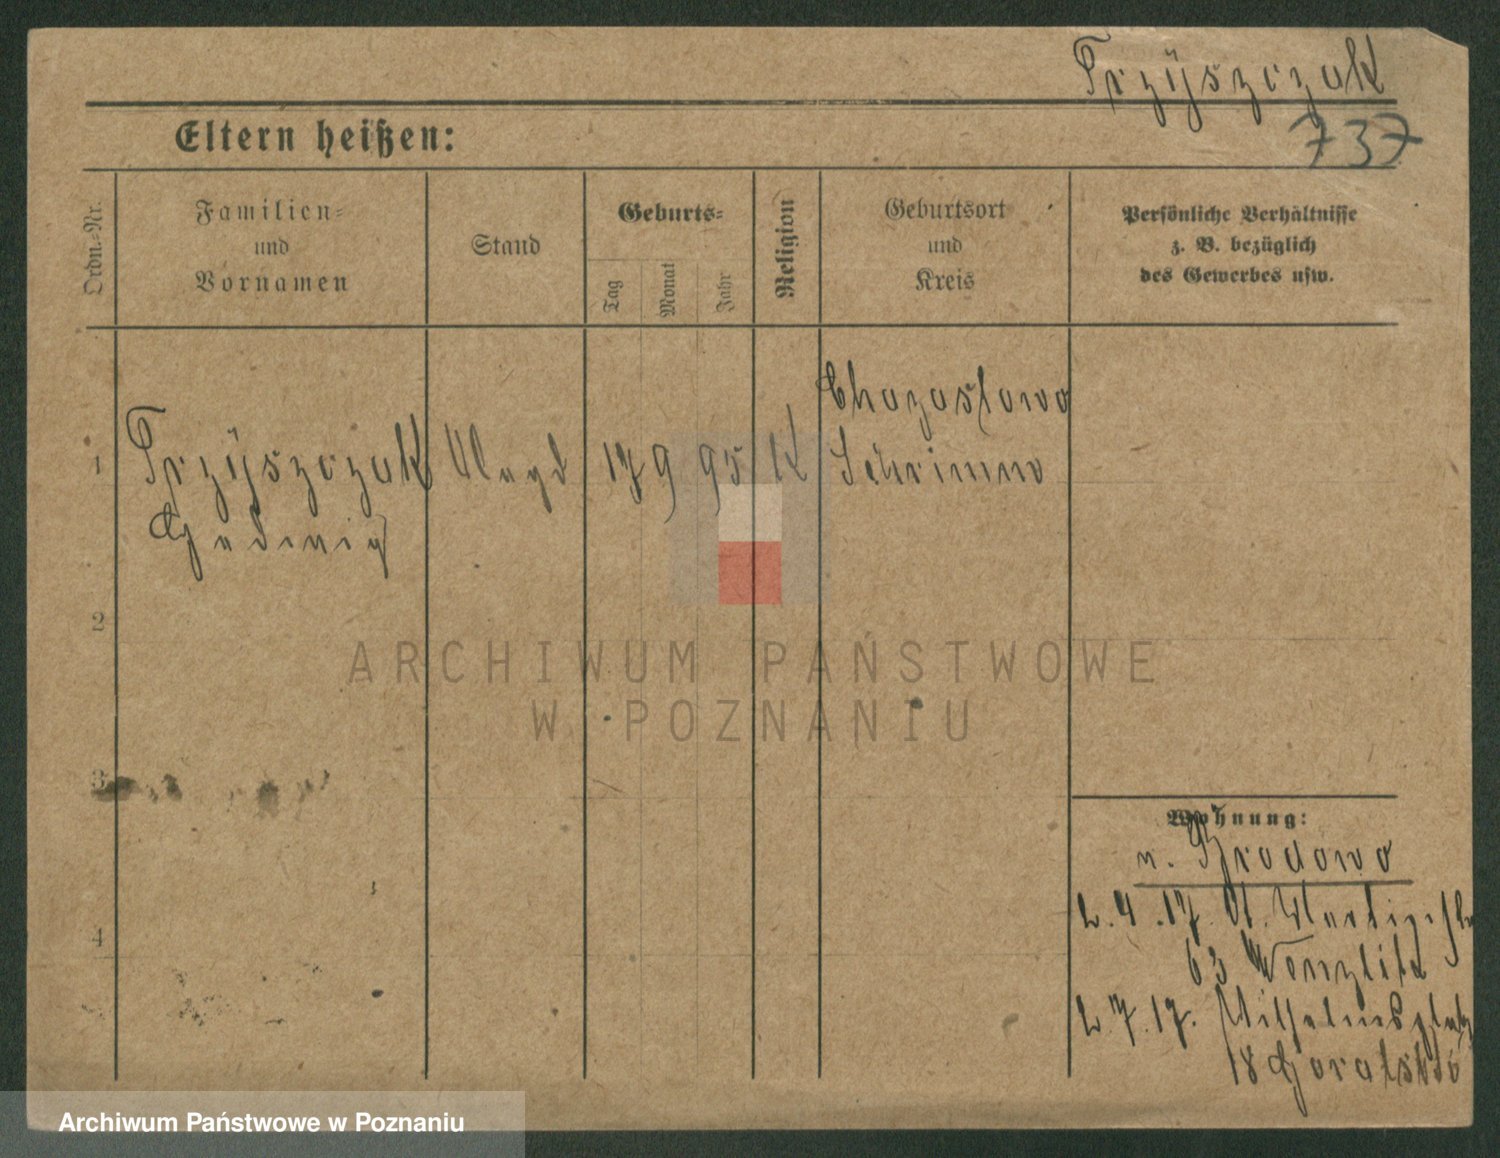 Przÿszczak
737
Eltern heißen:
Ordn.-Nr.
Familien-
und
Vornamen
Stand
Geburts-
Tag
Monat
Jahr
Religion
Geburtsort
und
Kreis
Persönliche Verhältnisse
z. B. bezüglich
des Gewerbes usw.
1
Przÿszczak
Magd
17 9 95
K
Schrimm
2
3
4
Wohnung:
v. Brodowo
2.4.17. St. Martinstr
63
2.7.17. Wilhelmsplatz
18
ARCHIWUM PAŃSTWOWE
W POZNANIU
Archiwum Państwowe w Poznaniu